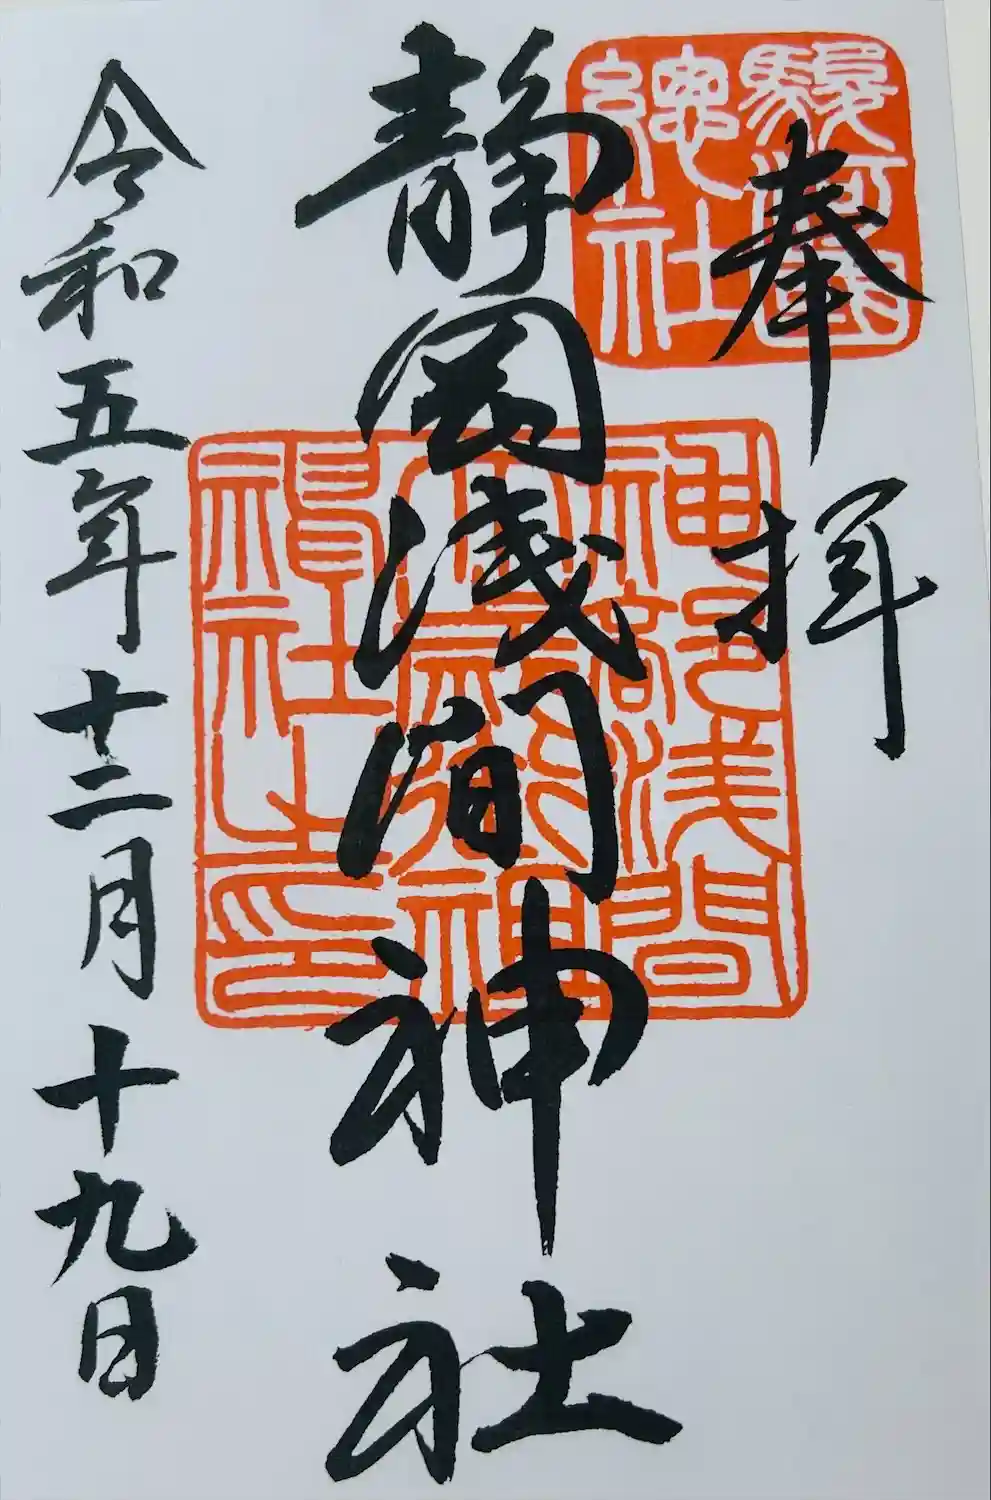 奉拝
駿河國
總社
静岡浅間神社
神部浅間
大歳御祖
神社之印
令和五年十二月十九日